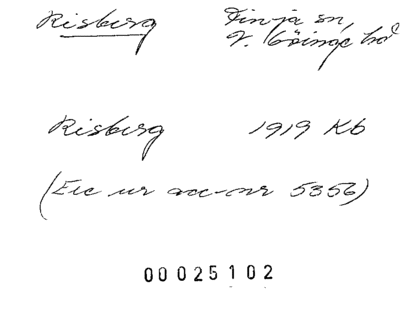 Risberg Finja sn,
V. Göinge hd
Risberg 1919 Kb
(Exc ur acc-nr 5356)
00025102